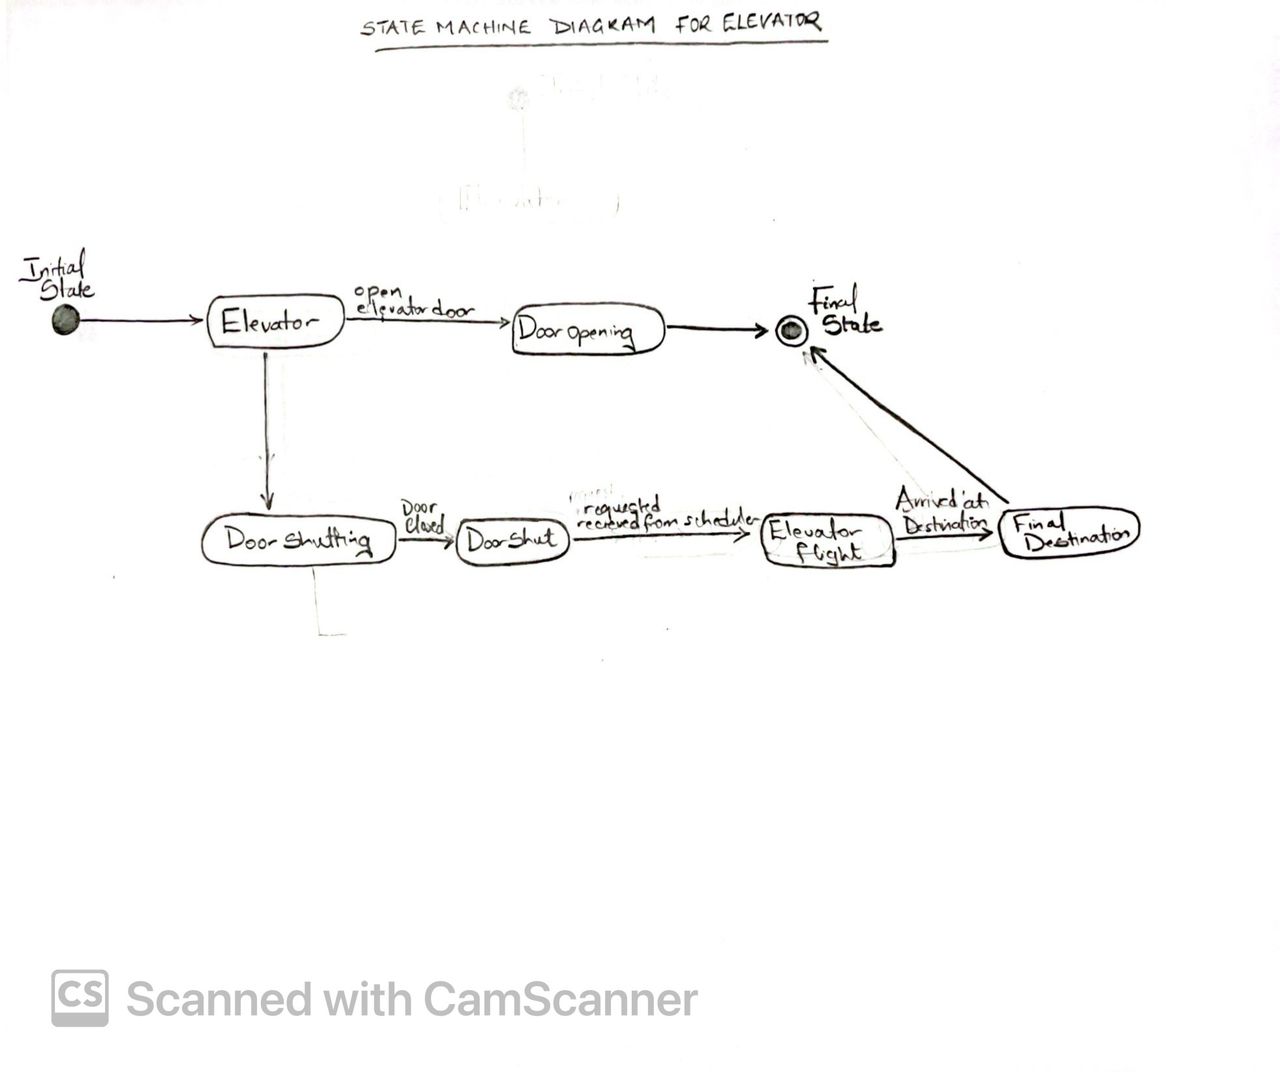 STATE MACHINE DIAGRAM FOR ELEVATOR
Initial
State
Elevator
open
elevator door
Door opening
Final
State
Door Shutting
Door
Closed
Door Shut
requested
recieved from scheduler
Elevator
flight
Arrived at
Destination
Final
Destination
CS Scanned with CamScanner